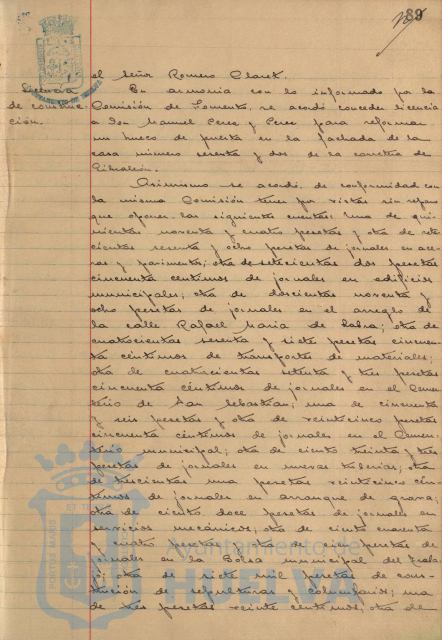 89
el Señor Romero Claret.
Licencia
de construc-
ción.
En armonia con lo informado por la
Comisión de Fomento, se acordó conceder licencia
a Don Manuel Perez y Perez para reformar
un hueco de puerta en la fachada de la
casa número sesenta y dos de la carretera de
Gibraleón.
Asimismo se acordó, de conformidad con
la misma Comisión tener por vistas sin reparo
que oponer las siguientes cuentas: Una de qui-
nientas noventa y cuatro pesetas y otra de sete-
cientas sesenta y ocho pesetas de jornales en ace-
ras y pavimentos; otra de setecientas dos pesetas
cincuenta centimos de jornales en edificios
municipales; otra de doscientas noventa y
ocho pesetas de jornales en el arreglo de
la calle Rafael Maria de Labra; otra de
cuatrocientas sesenta y siete pesetas cincuen-
ta céntimos de transportes de materiales;
otra de cuatrocientas setenta y tres pesetas
cincuenta céntimos de jornales en el Cemen-
terio de San Sebastian; una de cincuenta
y seis pesetas y otra de veinticinco pesetas
cincuenta céntimos de jornales en el Cemen-
terio municipal; otra de ciento treinta y tres
pesetas de jornales en nuevas tuberias; otra
de trescientas una pesetas veinticinco cén-
timos de jornales en arranque de grava;
otra de ciento doce pesetas de jornales en
servicios mecánicos; otra de ciento cuarenta
y cuatro pesetas otra de cien pesetas de
jornales en la Bolsa municipal del Traba-
jo; otra de siete mil pesetas de cons-
trucción de sepulturas y columbarios; una
de tres pesetas veinte centimos; otra de
Ayuntamiento de
HUELVA